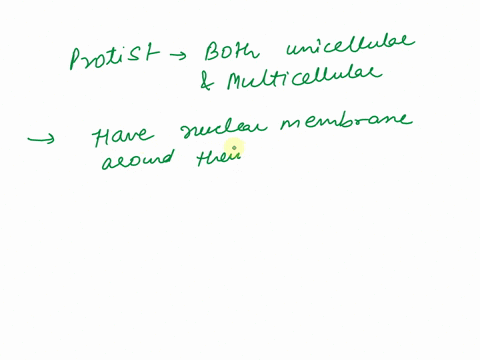 Protist → Both unicellular
& Multicellular
→ Have nuclear membrane
around their